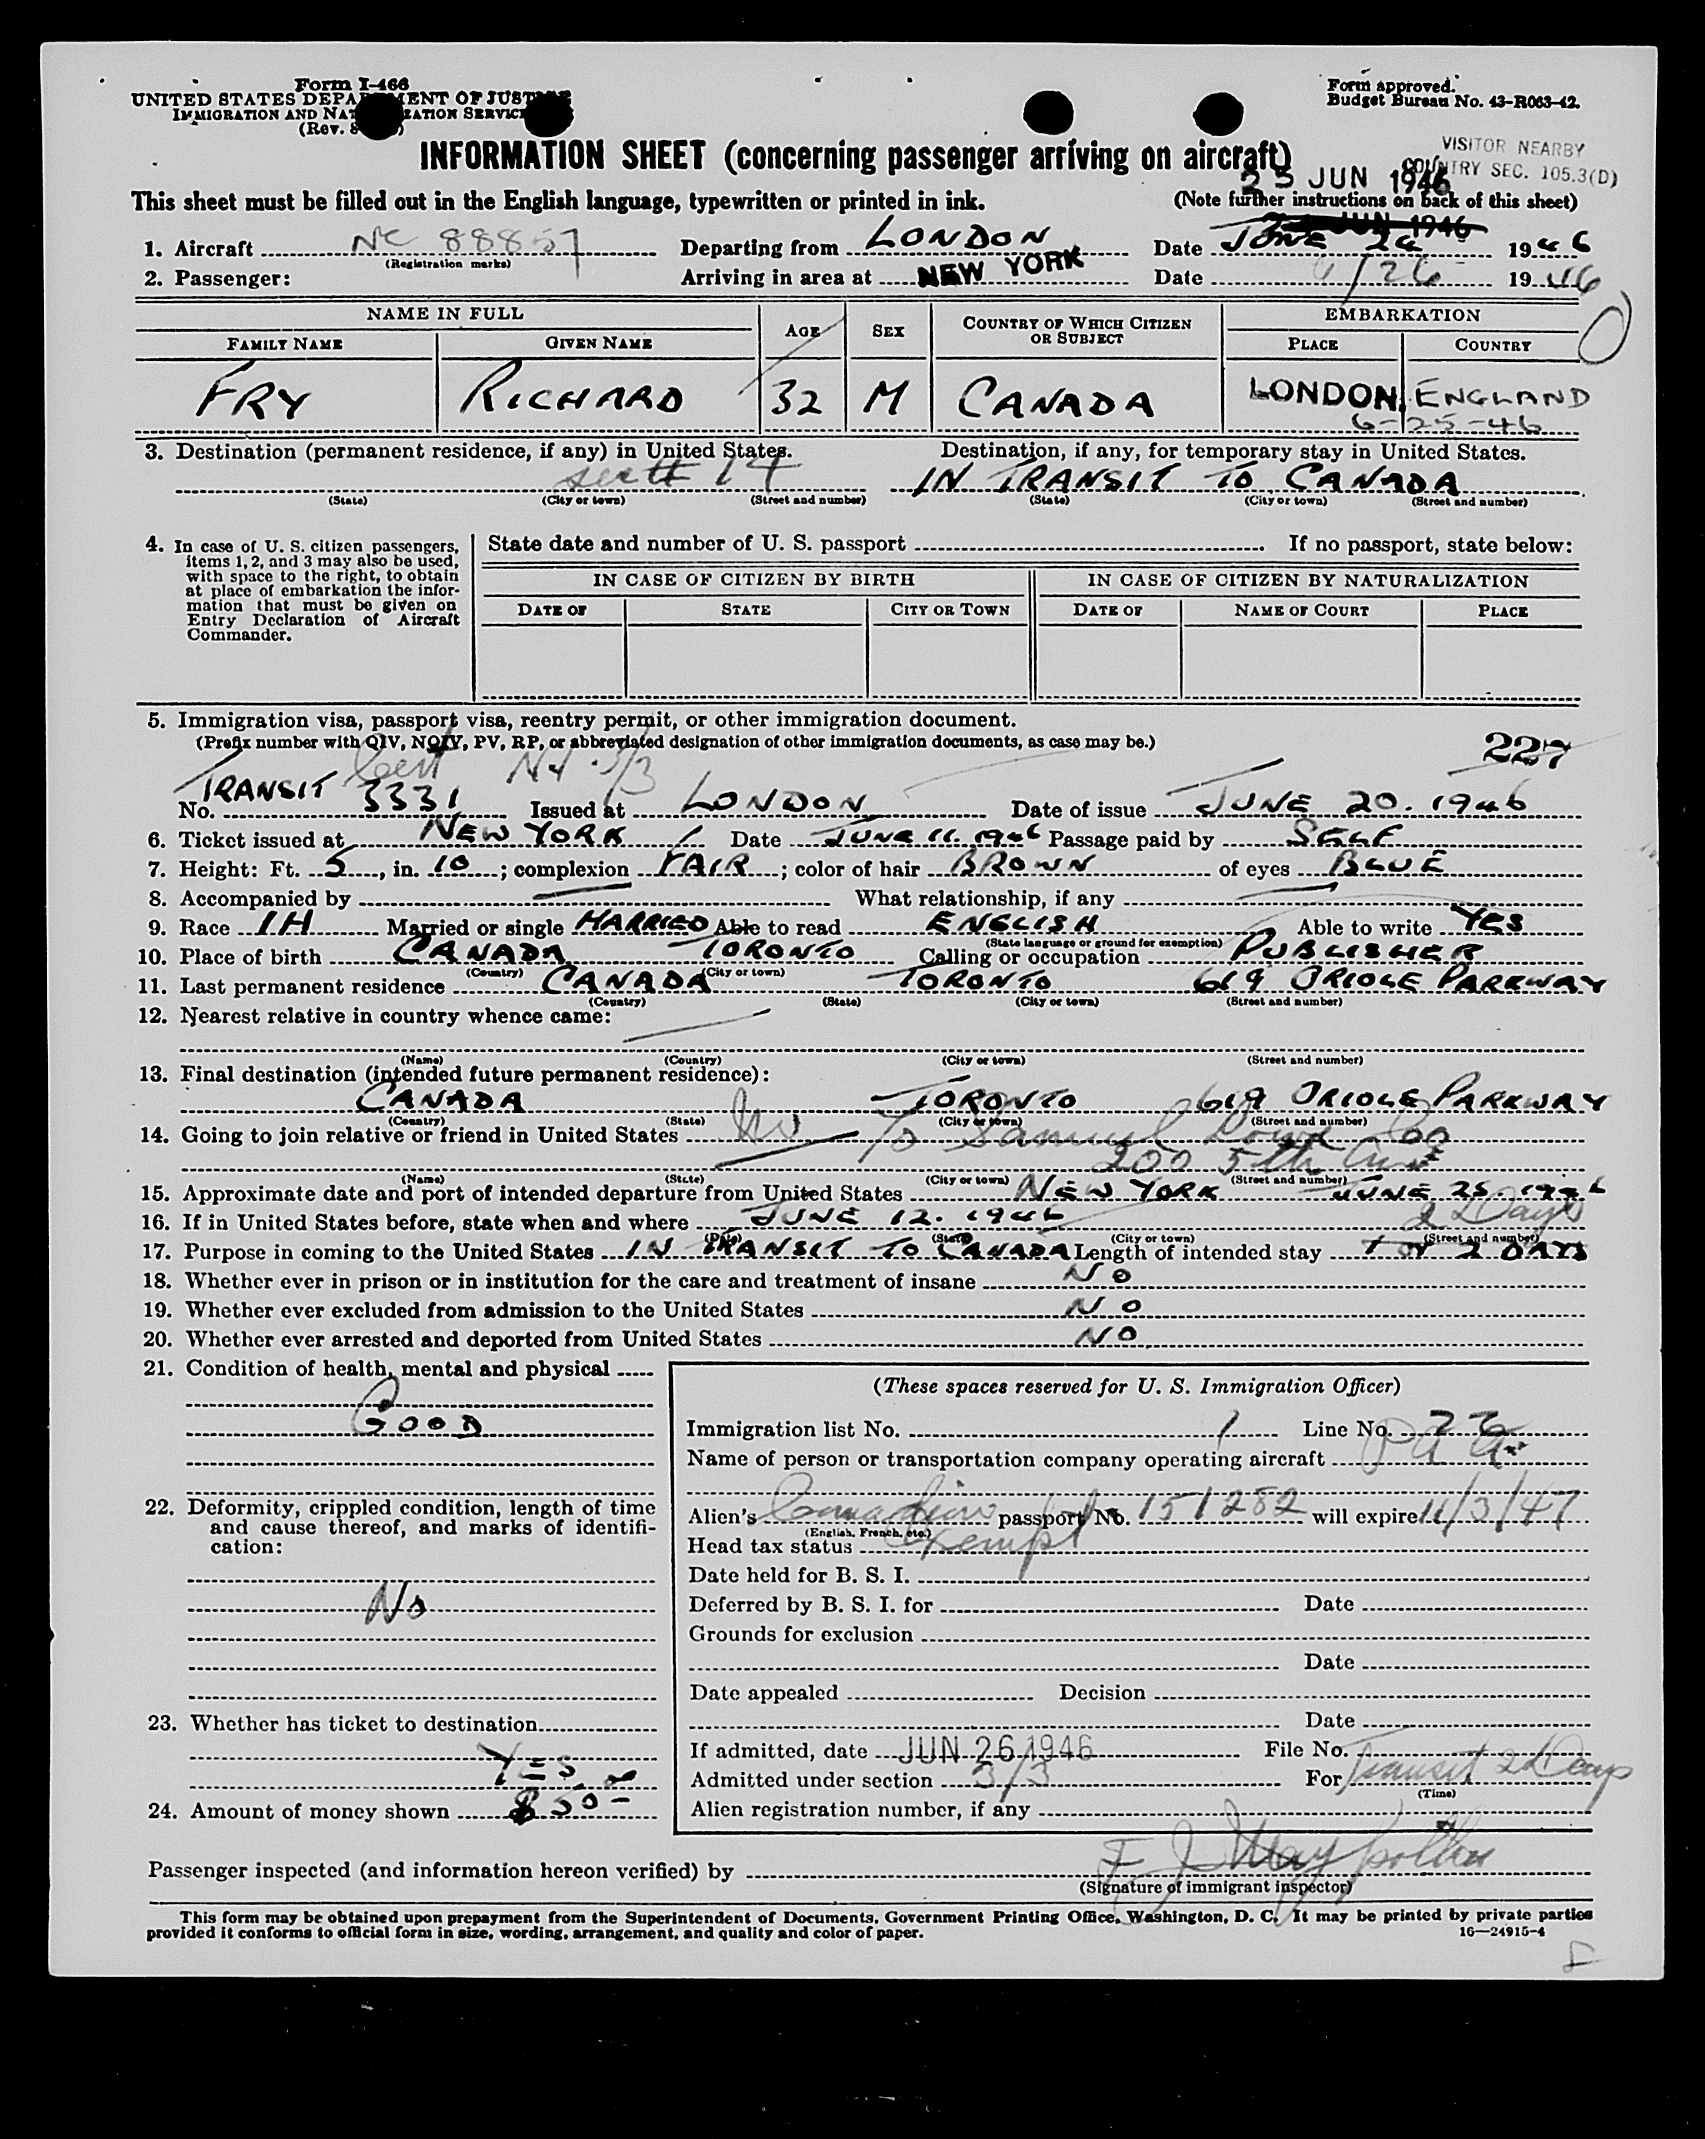 Form I-466
UNITED STATES DEPARTMENT OF JUSTICE
IMMIGRATION AND NATURALIZATION SERVICE
(Rev.
Form approved.
Budget Bureau No. 43-R063-42.
INFORMATION SHEET (concerning passenger arriving on aircraft)
VISITOR NEARBY
COUNTRY SEC. 105.3(D)
25 JUN 1946
This sheet must be filled out in the English language, typewritten or printed in ink. (Note further instructions on back of this sheet)
JUN 1946
1. Aircraft NC 88857 Departing from LONDON Date JUNE 24 1946
(Registration marks)
2. Passenger: Arriving in area at NEW YORK Date 6/26 1946
NAME IN FULL AGE SEX COUNTRY OF WHICH CITIZEN OR SUBJECT EMBARKATION
FAMILY NAME GIVEN NAME PLACE COUNTRY
FRY RICHARD 32 M CANADA LONDON, ENGLAND
6-25-46
3. Destination (permanent residence, if any) in United States. Destination, if any, for temporary stay in United States.
14 IN TRANSIT TO CANADA
(State) (City or town) (Street and number) (State) (City or town) (Street and number)
4. In case of U. S. citizen passengers, items 1, 2, and 3 may also be used, with space to the right, to obtain at place of embarkation the information that must be given on Entry Declaration of Aircraft Commander.
State date and number of U. S. passport . If no passport, state below:
IN CASE OF CITIZEN BY BIRTH IN CASE OF CITIZEN BY NATURALIZATION
DATE OF STATE CITY OR TOWN DATE OF NAME OF COURT PLACE
5. Immigration visa, passport visa, reentry permit, or other immigration document.
(Prefix number with QIV, NQIV, PV, RP, or abbreviated designation of other immigration documents, as case may be.)
227
Cert 3/3
TRANSIT
No. 3331 Issued at LONDON Date of issue JUNE 20. 1946
6. Ticket issued at NEW YORK Date JUNE 11. 1946 Passage paid by SELF
7. Height: Ft. 5, in. 10; complexion FAIR; color of hair BROWN of eyes BLUE
8. Accompanied by — What relationship, if any —
9. Race IH Married or single MARRIED Able to read ENGLISH Able to write YES
(State language or ground for exemption)
10. Place of birth CANADA TORONTO Calling or occupation PUBLISHER
(Country) (City or town)
11. Last permanent residence CANADA TORONTO 619 ORIOLE PARKWAY
(Country) (State) (City or town) (Street and number)
12. Nearest relative in country whence came: —
(Name) (Country) (City or town) (Street and number)
13. Final destination (intended future permanent residence):
CANADA TORONTO 619 ORIOLE PARKWAY
(Country) (State) (City or town) (Street and number)
14. Going to join relative or friend in United States No — Samuel Co
200 5th Ave
(Name) (State) (City or town) (Street and number)
15. Approximate date and port of intended departure from United States NEW YORK JUNE 25. 1946
16. If in United States before, state when and where JUNE 12. 1946 2 Days
(Date) (State) (City or town) (Street and number)
17. Purpose in coming to the United States IN TRANSIT TO CANADA Length of intended stay 1 or 2 DAYS
18. Whether ever in prison or in institution for the care and treatment of insane NO
19. Whether ever excluded from admission to the United States NO
20. Whether ever arrested and deported from United States NO
21. Condition of health, mental and physical
GOOD
22. Deformity, crippled condition, length of time and cause thereof, and marks of identification:
No
23. Whether has ticket to destination
YES
24. Amount of money shown $50-
(These spaces reserved for U. S. Immigration Officer)
Immigration list No. 1 Line No. 26
Name of person or transportation company operating aircraft PAA
Alien's Canadian passport No. 151282 will expire 11/3/47
(English, French, etc.)
Head tax status Exempt
Date held for B. S. I.
Deferred by B. S. I. for Date
Grounds for exclusion
Date
Date appealed Decision
Date
If admitted, date JUN 26 1946 File No.
Admitted under section 3/3 For Transit 2 Days
(Time)
Alien registration number, if any
Passenger inspected (and information hereon verified) by F J
(Signature of immigrant inspector)
This form may be obtained upon prepayment from the Superintendent of Documents, Government Printing Office, Washington, D. C. It may be printed by private parties
provided it conforms to official form in size, wording, arrangement, and quality and color of paper. 16—24915-4